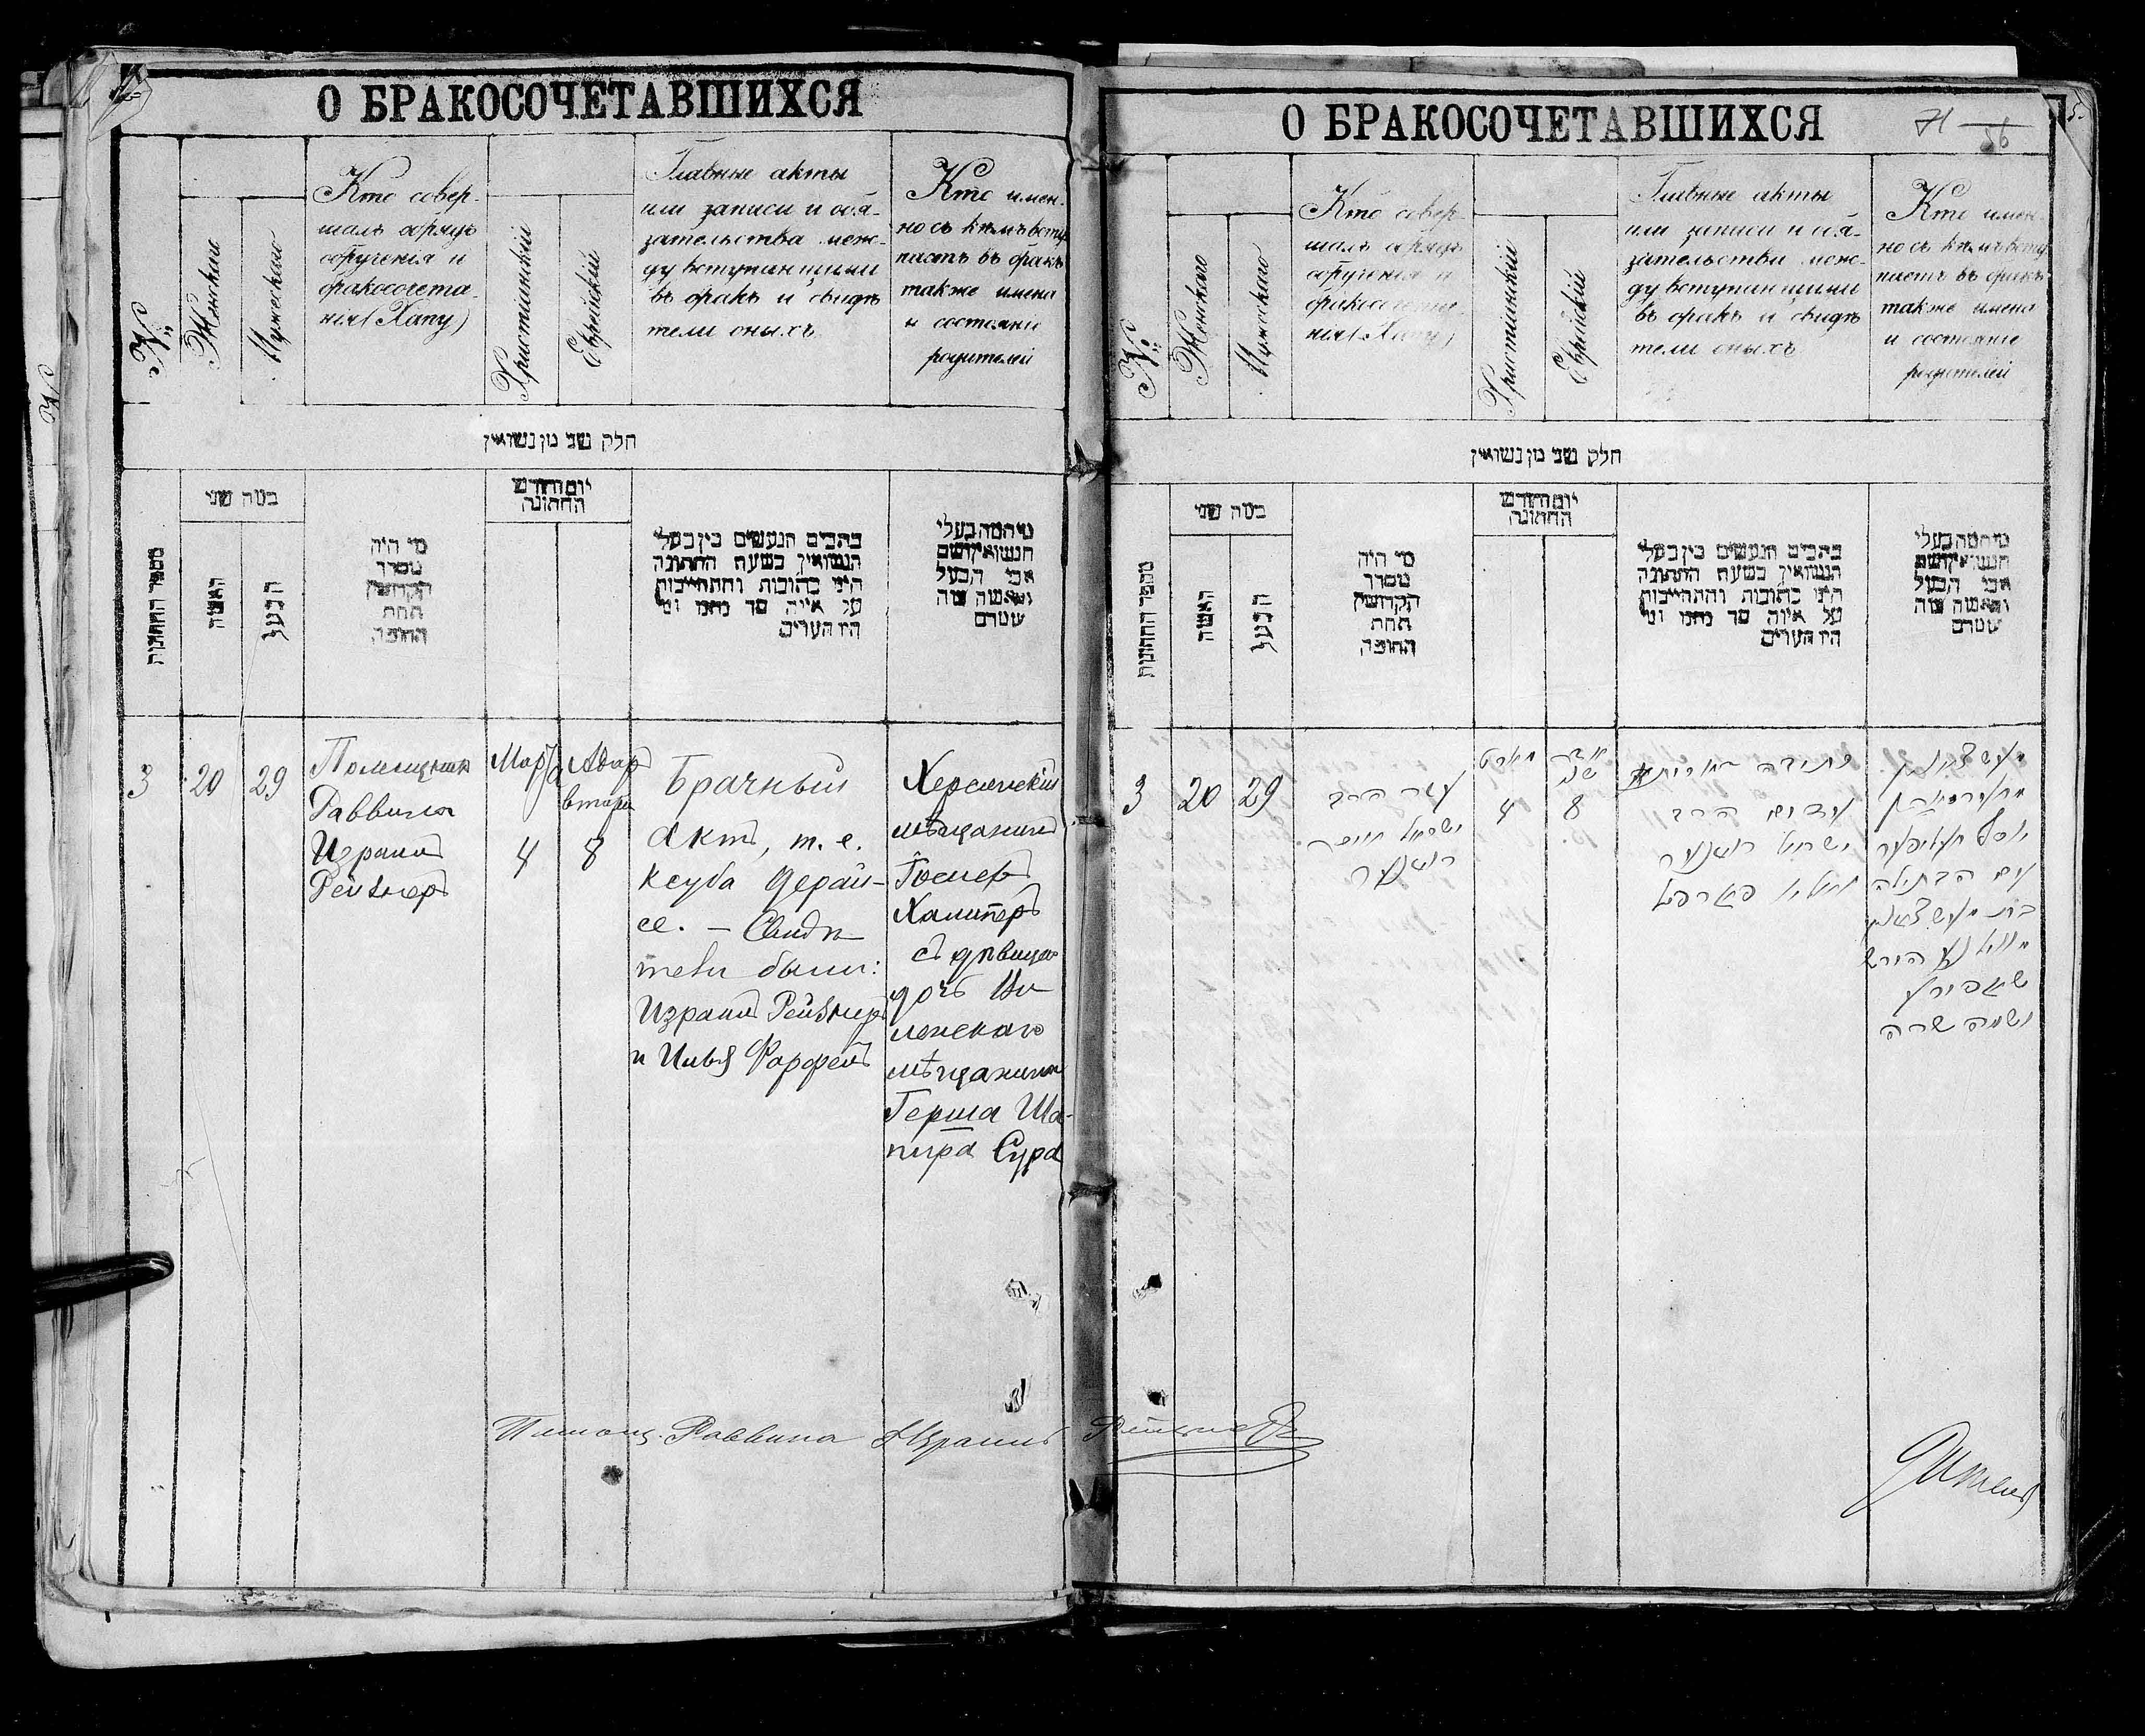 О БРАКОСОЧЕТАВШИХСЯ
№
Женскаго
Мужескаго
Кто совер-
шалъ обрядъ
обрученія и
бракосочета-
нія (Хапу)
Христіанскій
Еврейскій
Главные акты
или записи и обя-
зательства меж-
ду вступающими
въ бракъ и свидѣ
тели оныхъ
Кто имен-
но съ кѣмъ всту-
паетъ въ бракъ
также имена
и состояніе
родителей
חלק שני מן נשואין
מספר החתונות
כמה שני
האשה
הבעל
מי היה
מסדר
הקדושין
תחת
החופה
יום וחודש
החתונה
כתבים הנעשים בין בעלי
הנשואין בשעת החתונה
היינו כתובות והתחייבות
על איזה סך נחתמו ומי
היו העדים
3
20
29
Помощникъ
Раввина
Израиль
Рейзнеръ
Мар
4
Адар
втори
8
Брачный
актъ, т. е.
ксуба дерай-
се. – Свидѣ
тели были:
Израиль Рейзнеръ
и Илья Фарфель
Херсонскій
мѣщанинъ
Іосифъ
Халиперъ
съ дѣвицею
дочь Ви
ленскаго
мѣщанина
Герша Ша-
пира Сура
Помощ. Раввина Израиль Рейзнеръ
О БРАКОСОЧЕТАВШИХСЯ
71
56
№
Женскаго
Мужескаго
Кто совер-
шалъ обрядъ
обрученія и
бракосочета-
нія (Хапу)
Христіанскій
Еврейскій
Главные акты
или записи и обя-
зательства меж-
ду вступающими
въ бракъ и свидѣ
тели оныхъ
Кто имен-
но съ кѣмъ всту-
паетъ въ бракъ
также имена
и состояніе
родителей
חלק שני מן נשואין
מספר החתונות
כמה שני
האשה
הבעל
מי היה
מסדר
הקדושין
תחת
החופה
יום וחודש
החתונה
כתבים הנעשים בין בעלי
הנשואין בשעת החתונה
היינו כתובות והתחייבות
על איזה סך נחתמו ומי
היו העדים
3
20
29
הרב
ישראל
מארט
4
אדר
שני
8
הרב
ישראל
יוסף
עם הבתולה
בת
הירש
שאפירא
ושמה שרה